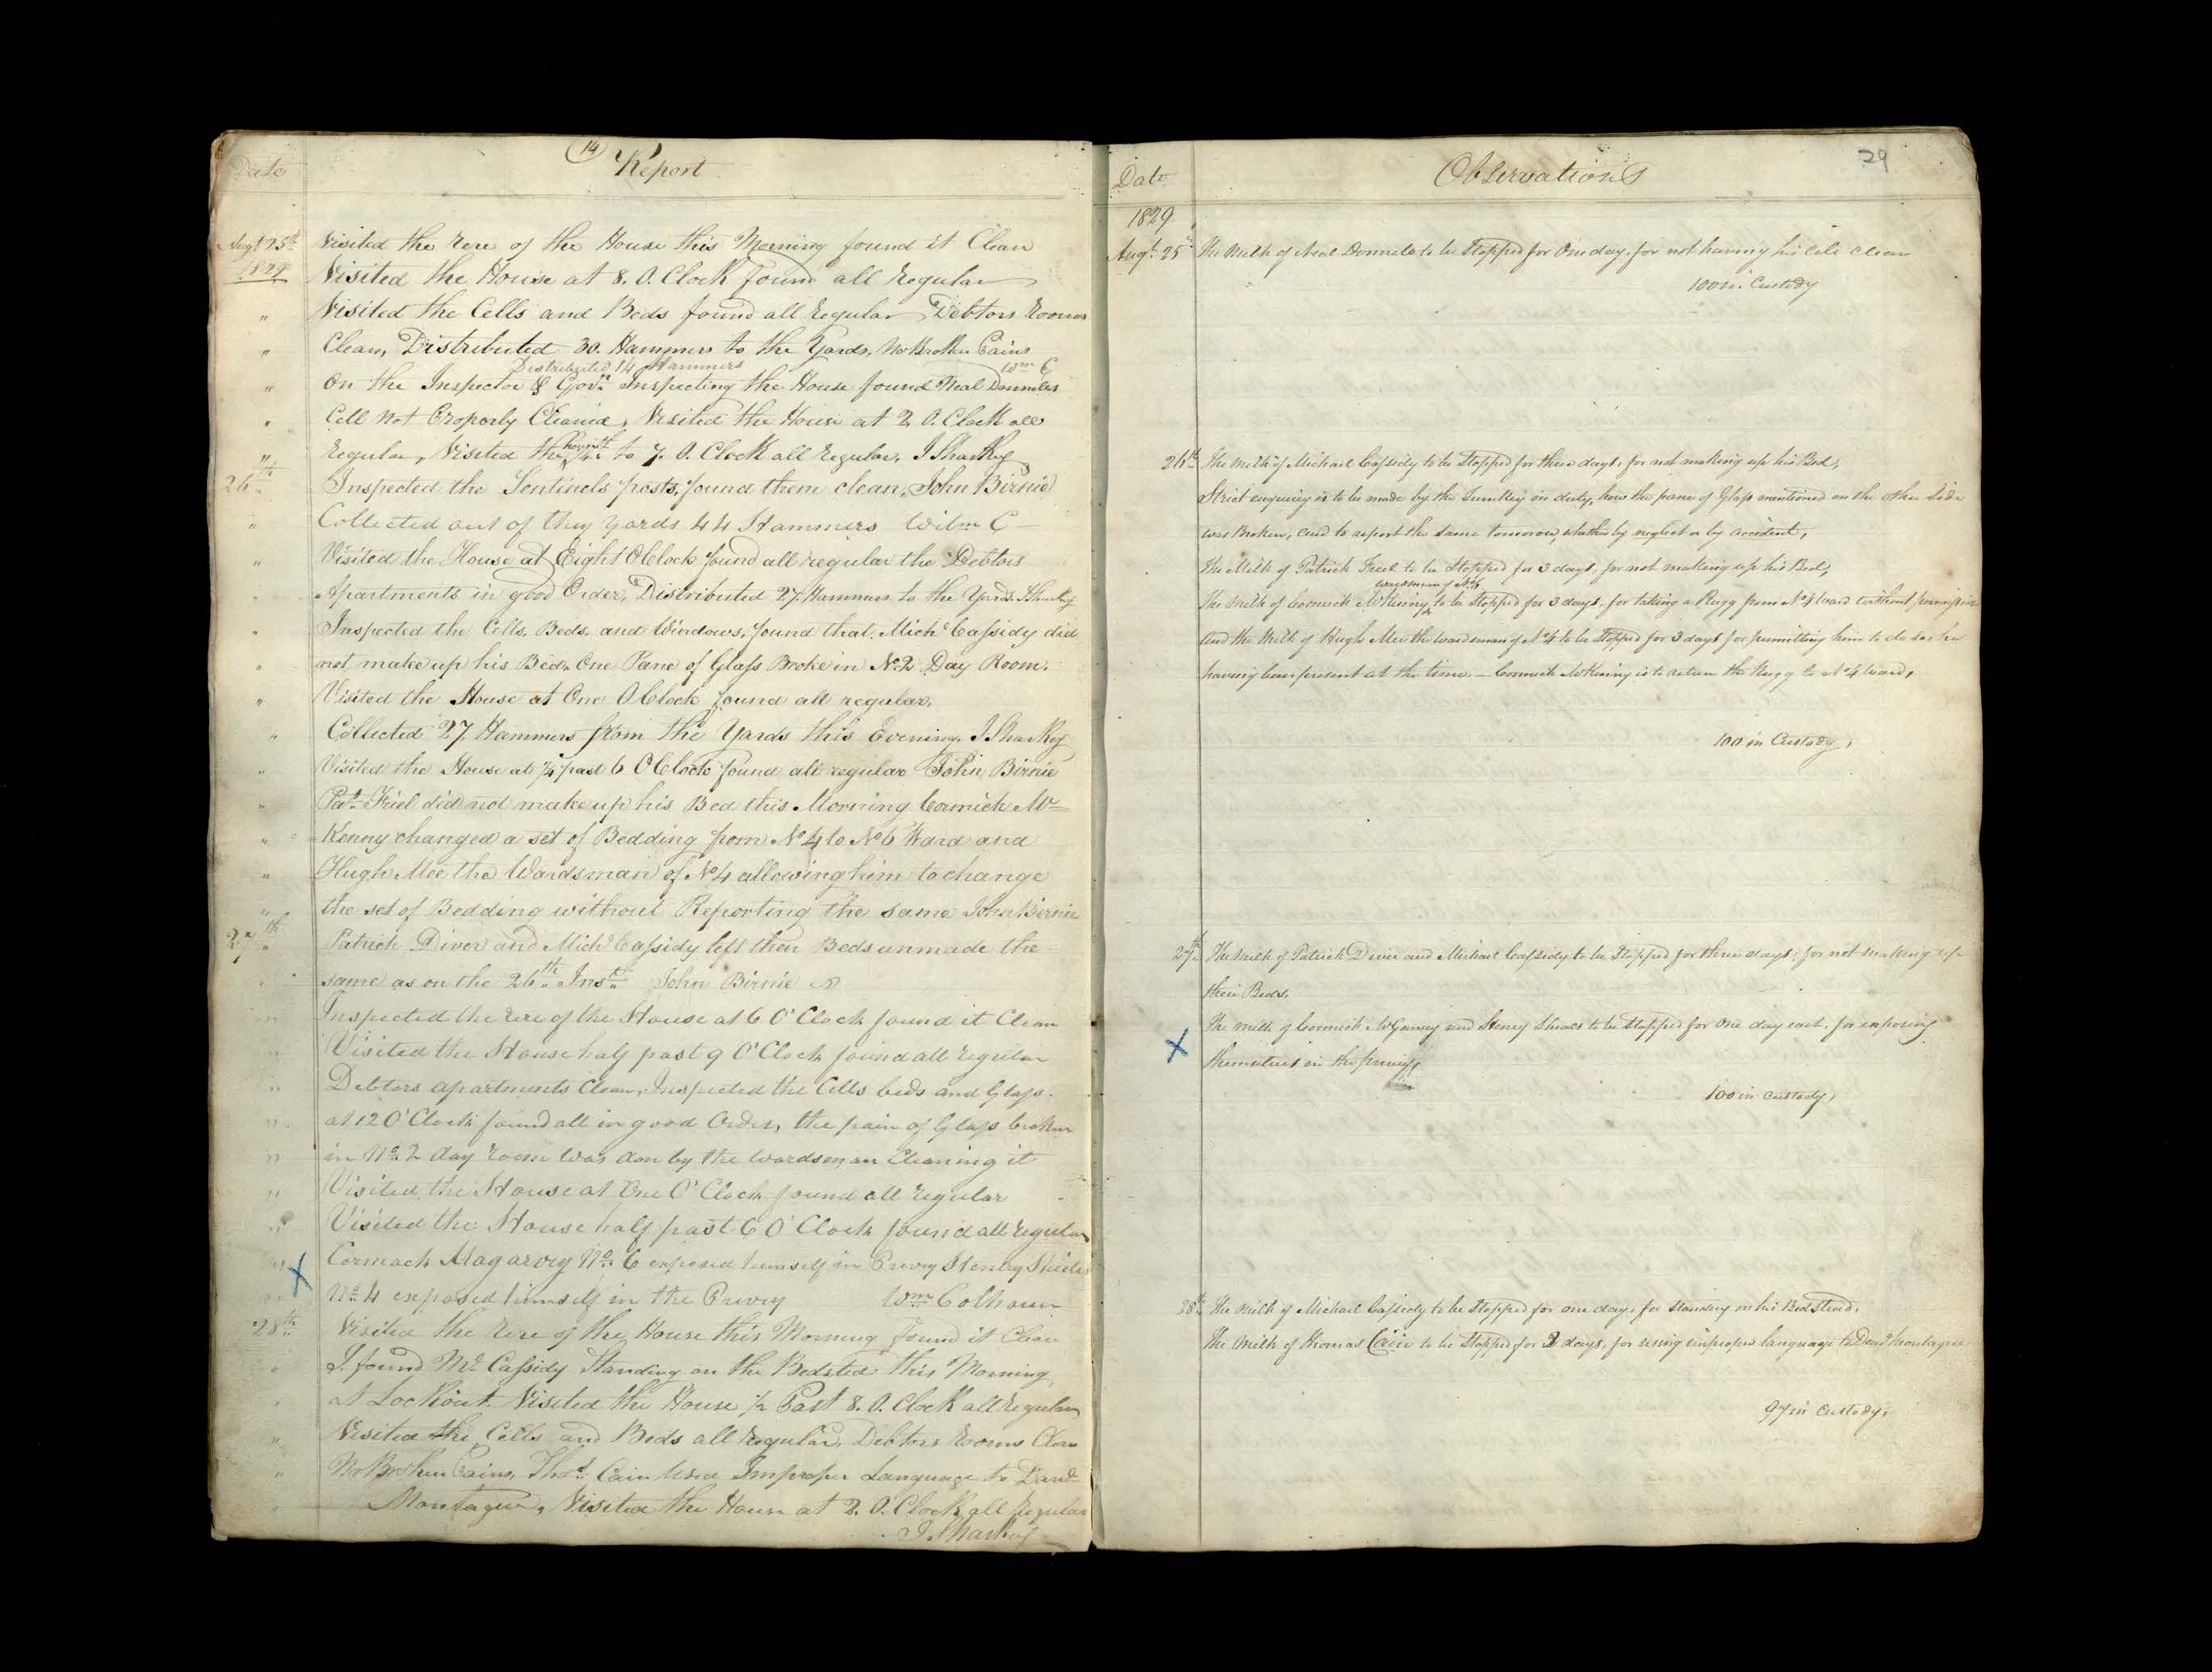 14
Date
Report
Augt 25th Visited the Rere of the House this Morning found it Clean
1829 Visited the House at 8. O. Clock found all Regular
" Visited the Cells and Beds found all Regular Debtors Rooms
" Clean, Distributed 30. Hammers to the Yards, No Broken Pains
Distributed 14 Hammers Wm C
" On the Inspector & Govn. Inspecting the House found Neal Donnelos
" Cell Not Properly Cleaned, Visited the House at 2. O. Clock all
" Regular, Visited the House 1/4 to 7. O. Clock all Regular, J Sharkey
26th Inspected the Sentinels posts, found them clean, John Birnie
" Collected out of they yards 44 Hammers Wilm C
" Visited the House at Eight OClock found all regular the Debtors
" Apartments in good Order, Distributed 27. Hammers to the Yards J Sharkey
" Inspected the Cells, Beds, and Windows, found that Michl Cassidy did
" not make up his Bed. One Pane of Glass Broke in No 2 Day Room.
" Visited the House at One OClock found all regular,
" Collected 27 Hammers from the Yards this Evening. J Sharkey
" Visited the House at 1/4 past 6 OClock found all regular John Birnie
" Pat. Friel did not make up his Bed this Morning Cormick Mc=
" =Kenny changed a set of Bedding from No 4 to No 6 Ward and
" Hugh Mee the Wardsman of No 4 allowing him to change
" the set of Bedding without Reporting the same John Birnie
27th " Patrick Diver and Michl Cassidy left their Beds unmade the
" same as on the 26th Inst. John Birnie
" Inspected the rere of the House at 6 O'Clock found it Clean
" Visited the House half past 9 O'Clock found all regular
" Debtors apartments Clean, Inspected the Cells beds and Glass
" at 12 O'Clock found all in good Order, the pain of Glass broken
" in No. 2 day room was don by the wardsman Cleaning it
" Visited the House at One O'Clock found all regular
" Visited the House half past 6 O'Clock found all regular
" Cormack Magarvey No. 6 exposed himself in Privey Henry Shiels
X
" No. 4 exposed himself in the Privey Wm Colhoun
28th Visited the Rere of the House this Morning found it Clean
" I found Ml Cassidy Standing on the Bedsted this Morning
" at Lockout. Visited the House 1/2 Past 8. O. Clock all Regular
" Visited the Cells and Beds all Regular, Debtors Rooms Clean
" No Broken Pains, Thos. Cain Used Improper Language to Davd
" Montague, Visited the House at 2. O. Clock all Regular
J. Sharkey
Date
Observations
29
1829
Augt 25th The Milk of Neal Donnelo to be Stopped for One day, for not having his Cell clean
100 in Custody
26th The Milk of Michael Cassidy to be Stopped for three days, for not making up his Bed,
Strict enquiry is to be made by the Turnkey on duty, how the pane of Glass mentioned on the other side
was Broken, and to report the same tomorow, whether by neglect or by accident,
The Milk of Patrick Freel to be Stopped for 3 days, for not making up his Bed,
wardsman of No 6
The Milk of Cormick McKinny to be Stopped for 3 days, for taking a Rugg from No 4 Ward without permission
and the Milk of Hugh Mee the wardsman of No 4 to be Stopped for 3 days for permitting him to do so, he
having been present at the time. — Cormick McKinny is to return the Rugg to No 4 Ward,
100 in Custody,
27th The Milk of Patrick Diver and Michael Cassidy to be Stopped for three days, for not making up
their Beds.
The Milk of Cormick McGarvey and Henry Sheals to be Stopped for One day each, for exposing
X
themselves in the privey,
100 in Custody,
28th The Milk of Michael Cassidy to be Stopped for one day, for Standing on his Bed Stead,
The Milk of Thomas Cain to be Stopped for 2 days, for using improper language to David Montague
97 in Custody,